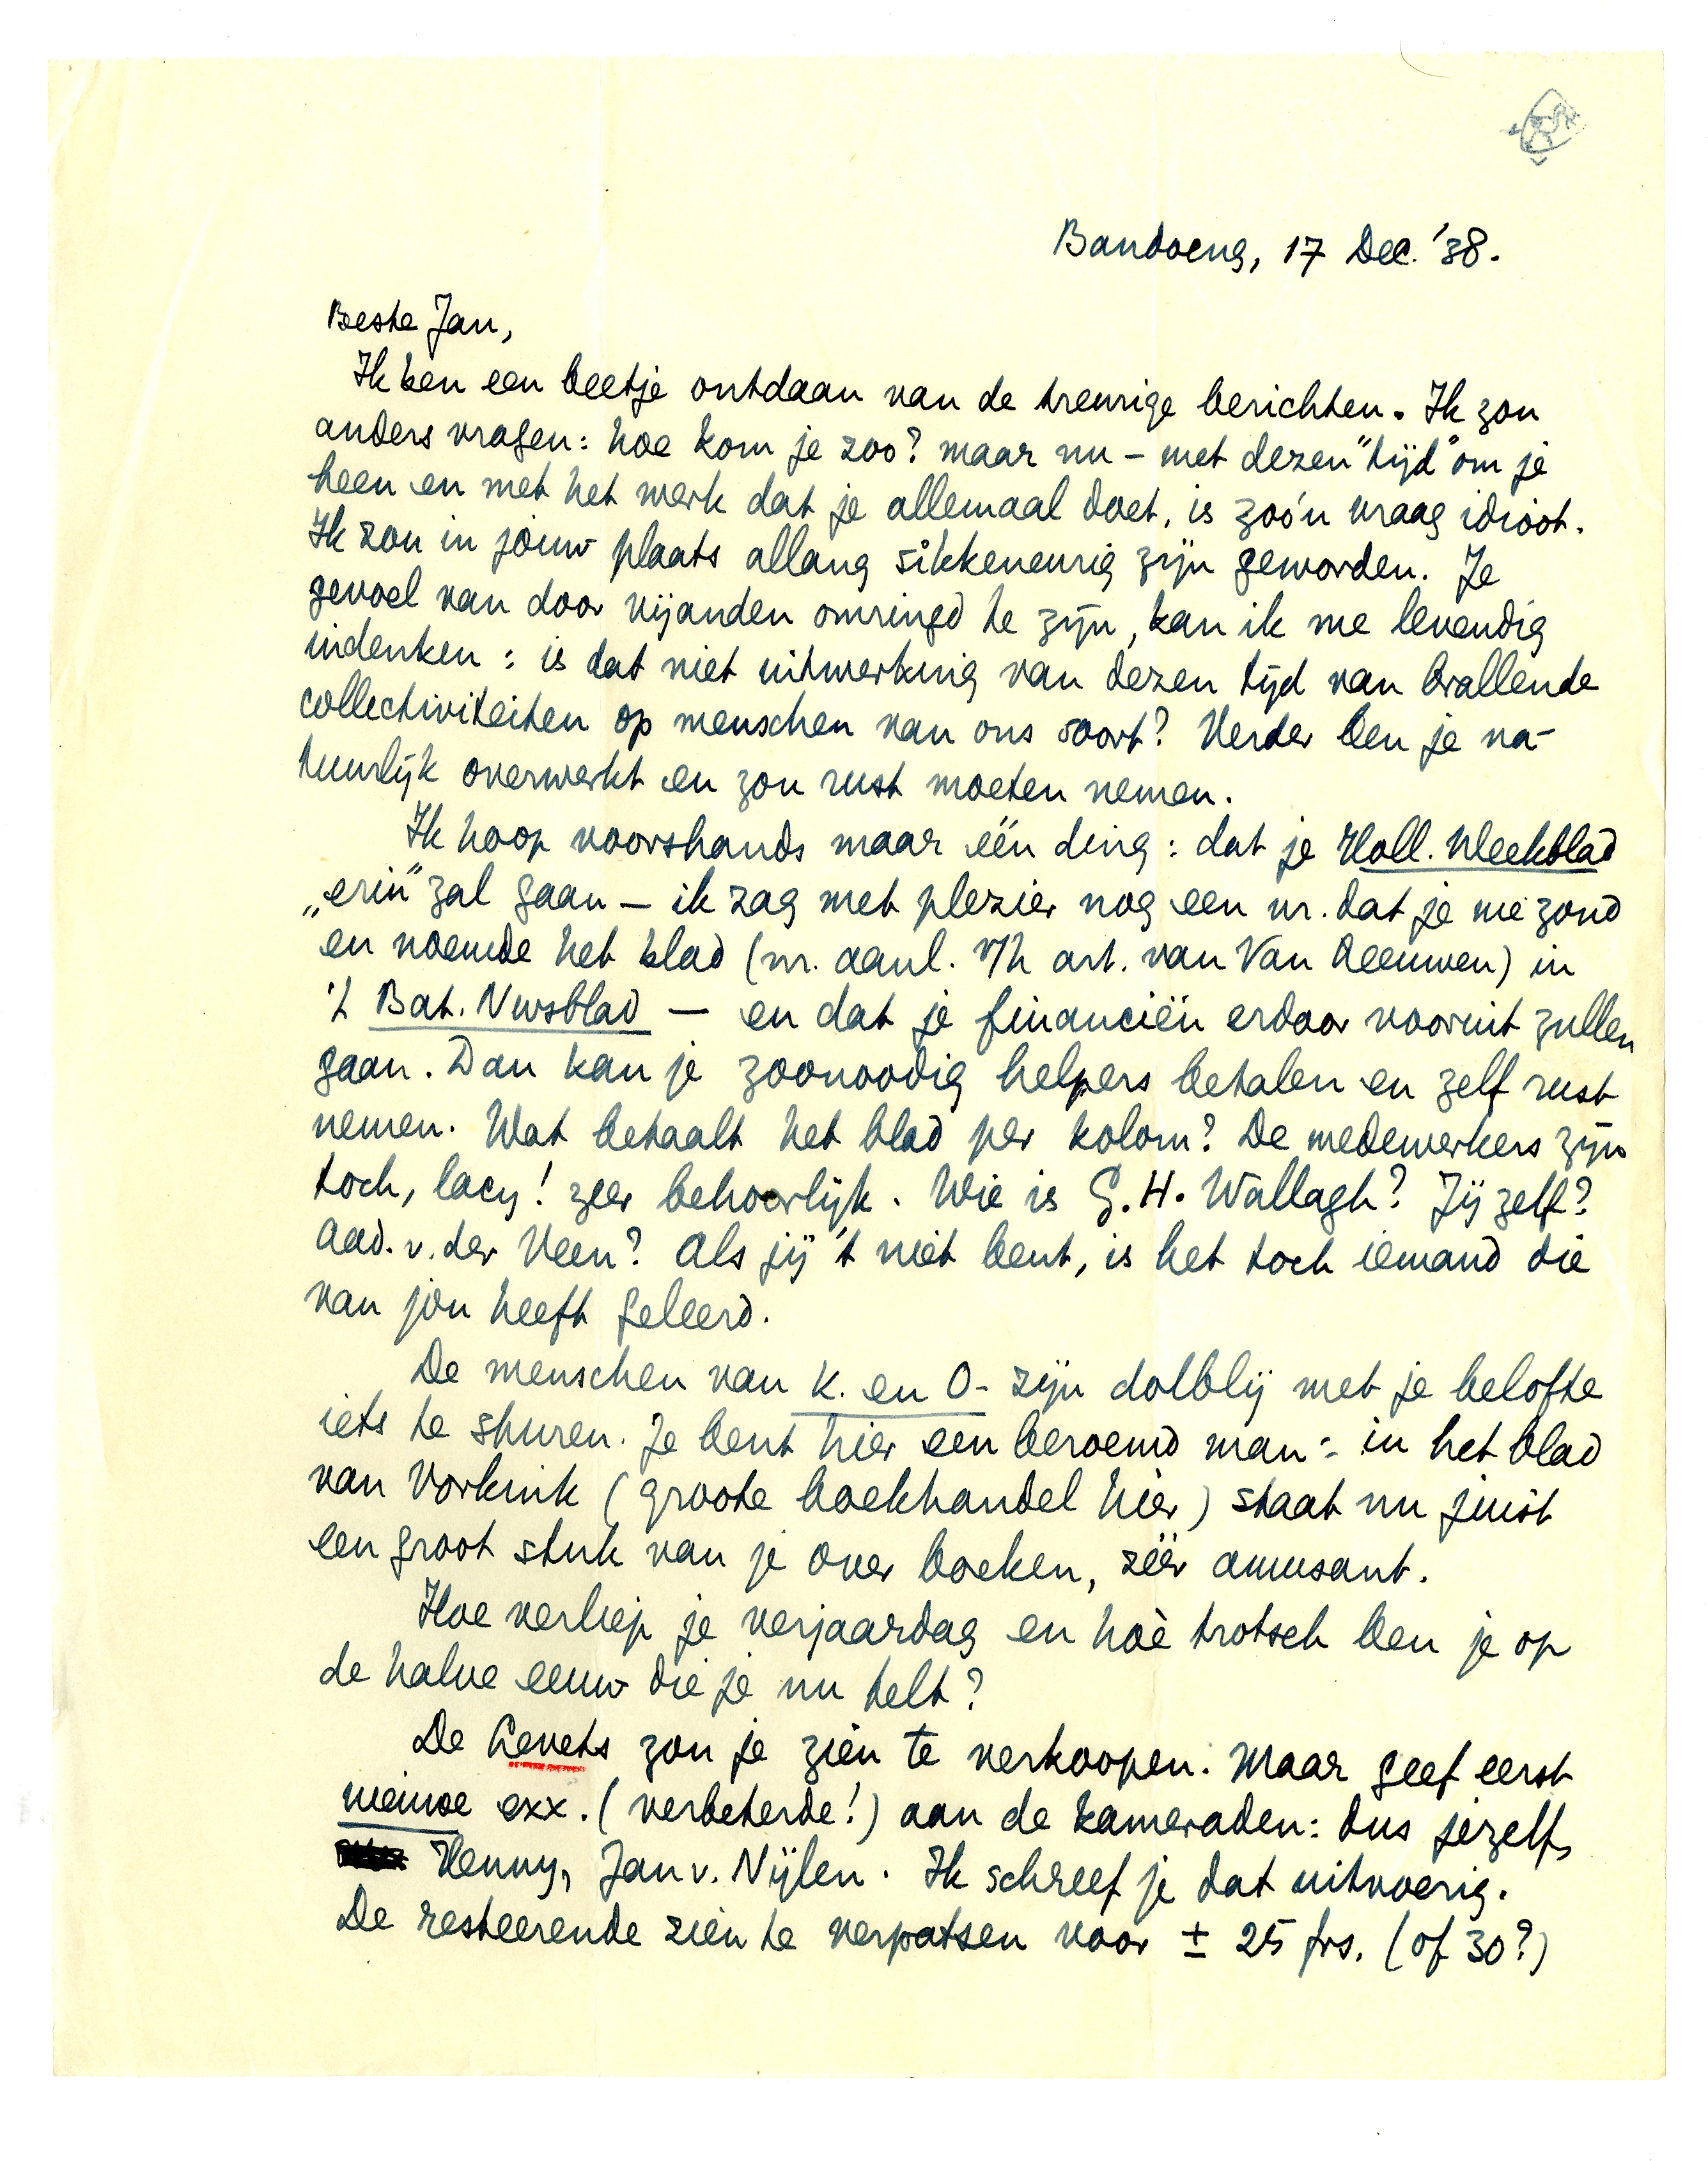 Bandoeng, 17 Dec. '38.
Beste Jan,
Ik ben een beetje ontdaan van de treurige berichten. Ik zou
anders vragen: hoe kom je zoo? maar nu — met dezen "tijd" om je
heen en met het werk dat je allemaal doet, is zoo'n vraag idioot.
Ik zou in jouw plaats allang sikkeneurig zijn geworden. Je
gevoel van door vijanden omringd te zijn, kan ik me levendig
indenken: is dat niet uitwerking van dezen tijd van brallende
collectiviteiten op menschen van ons soort? Verder ben je na-
tuurlijk overwerkt en zou rust moeten nemen.
Ik hoop voorshands maar één ding: dat je Holl. Weekblad
„erin” zal gaan — ik zag met plezier nog een nr. dat je me zond
en noemde het blad (nr. aanl. v/h art. van Van Leeuwen) in
't Bat. Nwsblad — en dat je financiën erdoor vooruit zullen
gaan. Dan kan je zoonoodig helpers betalen en zelf rust
nemen. Wat betaalt het blad per kolom? De medewerkers zijn
toch, lacy! zeer behoorlijk. Wie is G.H. Wallagh? Jij zelf?
Aad. v. der Veen? Als jij 't niet bent, is het toch iemand die
van jou heeft geleerd.
De menschen van K. en O. zijn dolblij met je belofte
iets te sturen. Je bent hier een beroemd man: in het blad
van Vorkink (groote boekhandel hier) staat nu juist
een groot stuk van je over boeken, zéér amusant.
Hoe verliep je verjaardag en hoè trotsch ben je op
de halve eeuw die je nu telt?
De Levets zou je zien te verkoopen. Maar geef eerst
nieuwe exx. (verbeterde!) aan de kameraden: dus jezelf,
Henny, Jan v. Nijlen. Ik schreef je dat uitvoerig.
De resteerende zien te verpatsen voor ± 25 frs. (of 30?)